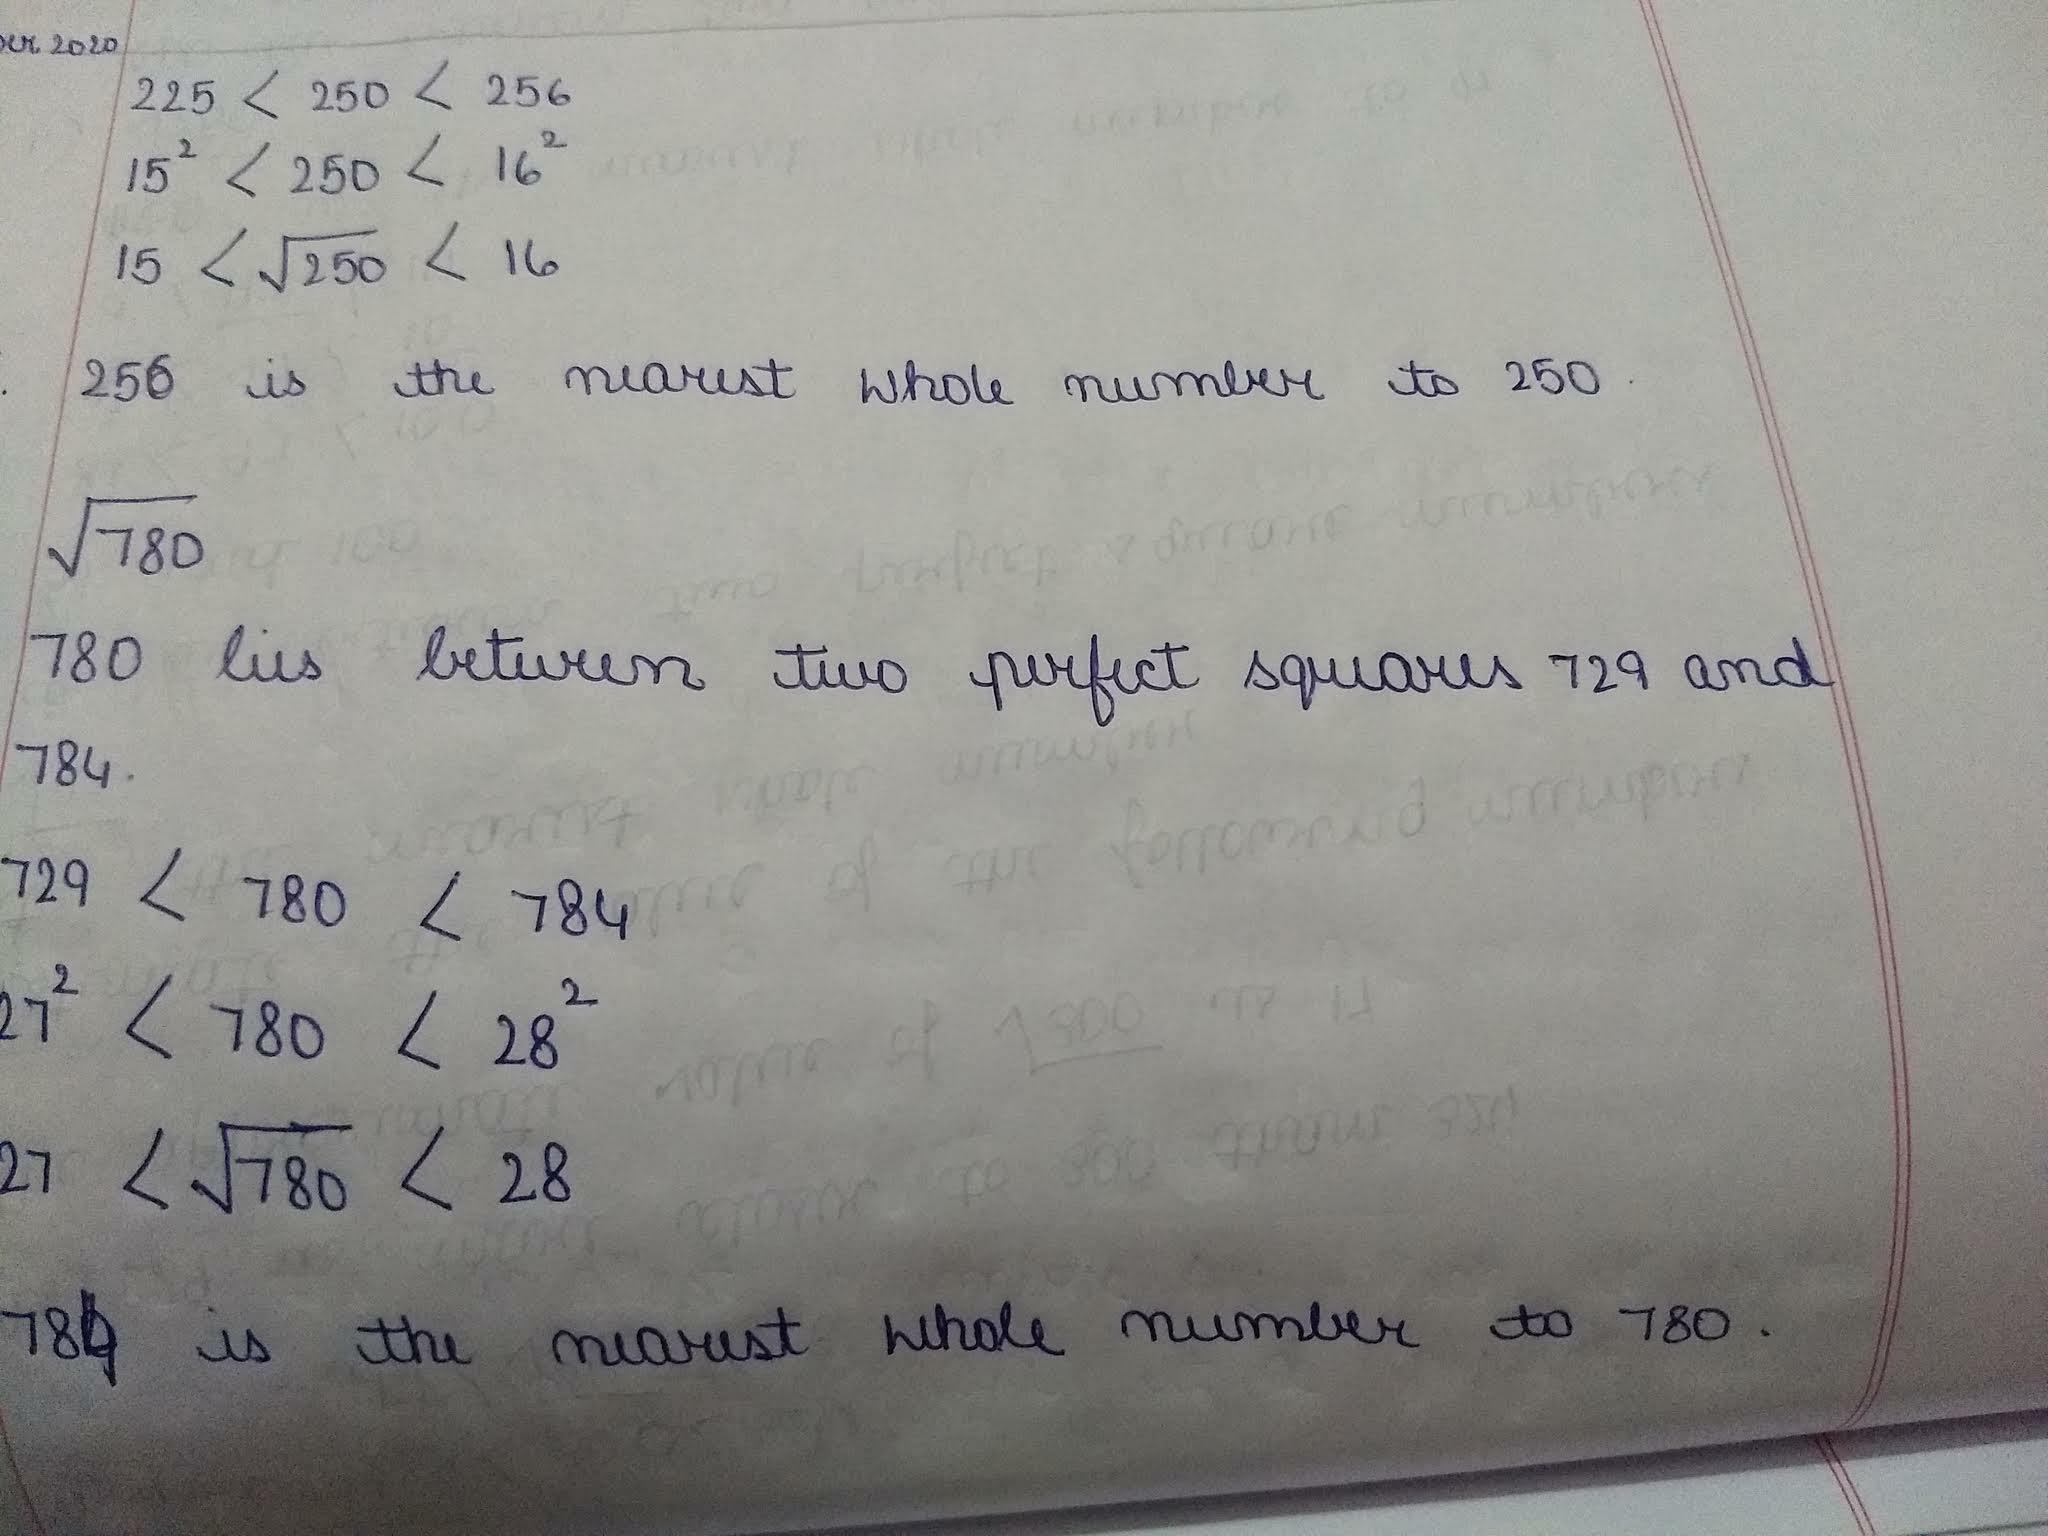 2020
225 < 250 < 256
15² < 250 < 16²
15 < √250 < 16
256 is the nearest whole number to 250.
√780
780 lies between two perfect squares 729 and
784.
729 < 780 < 784
27² < 780 < 28²
27 < √780 < 28
784 is the nearest whole number to 780.